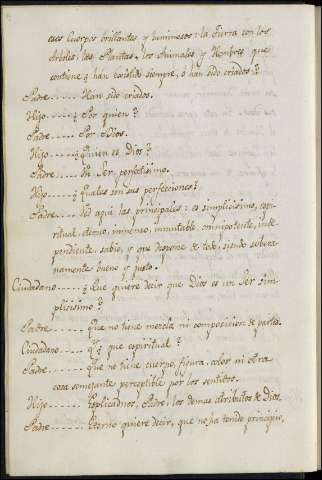 esos Cuerpos brillantes y luminosos: la Tierra con los
Arboles, las Plantas, los Animales, y Hombres que
contiene ¿han existido siempre, ó han sido criados?
Padre..... Han sido criados.
Hijo..... ¿Por quien?
Padre..... Por Dios.
Hijo..... ¿Quien es Dios?
Padre..... Un Ser perfectisimo.
Hijo..... ¿Quales son sus perfecciones?
Padre..... He aqui las principales: es simplicisimo, espi-
ritual, eterno, inmenso, inmutable, omnipotente, inde-
pendiente, sabio, y que dispone de todo, siendo sobera-
namente bueno y justo.
Ciudadano..... ¿Que quiere decir que Dios es un Ser sim-
plicisimo?
Padre..... Que no tiene mezcla ni composicion de partes.
Ciudadano..... ¿Y que espiritual?
Padre..... Que no tiene cuerpo, figura, color ni otra
cosa semejante perceptible por los sentidos.
Hijo..... Esplicadnos, Padre, los demas atributos de Dios.
Padre..... Eterno quiere decir, que no ha tenido principio,